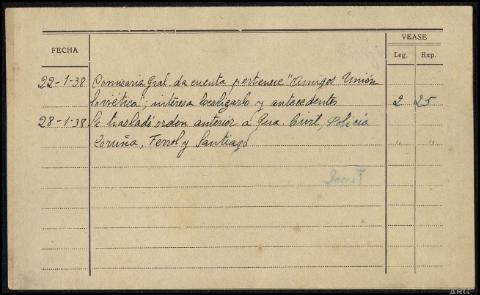 FECHA
VEASE
Leg. Exp.
22-1-38 Comisaria Gral. da cuenta pertenece "Amigos Unión
Soviética"; interesa localizarlo y antecedentes 2 25
28-1-38 Se trasladó orden anterior a Gua. Civil, Policía
Coruña, Ferrol y Santiago " "